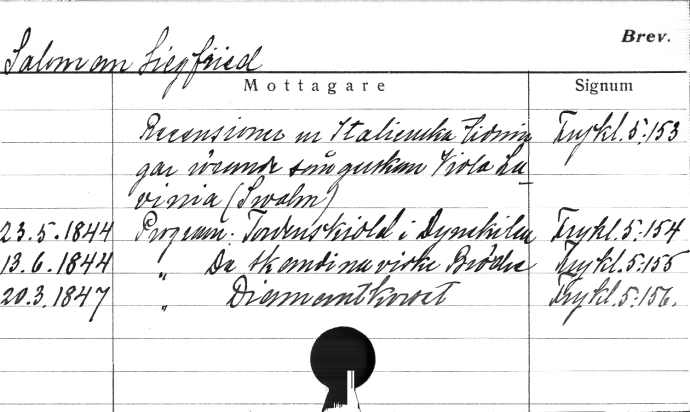 Brev.
Saloman Siegfried
Mottagare Signum
Recensioner ur Italienska tidnin Trykl. 5:153
gar rörande sångerskan Viola La
vinia (Swalm)
23.5.1844 Program. Tordenskiold i Dynekilen Trykl. 5:154
13.6.1844 " De skandinaviske Brødre Trykl. 5:155
20.3.1847 " Diamantkorset Trykl. 5:156.